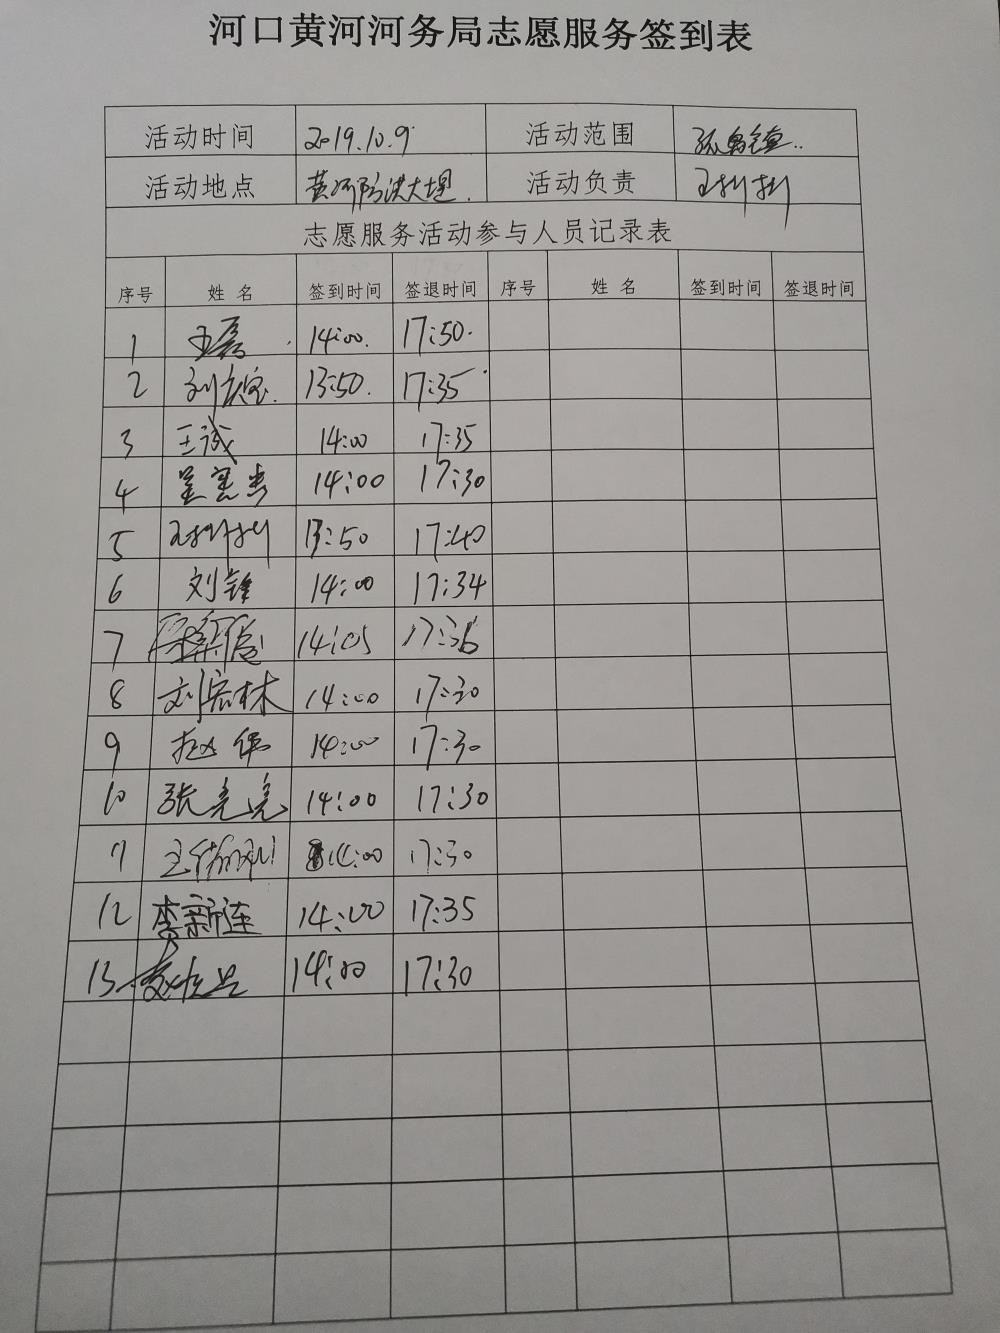 河口黄河河务局志愿服务签到表
活动时间 2019.10.9 活动范围 孤岛镇
活动地点 黄河防洪大堤. 活动负责
志愿服务活动参与人员记录表
序号 姓名 签到时间 签退时间 序号 姓名 签到时间 签退时间
1 王磊 14:00. 17:50.
2 13:50. 17:35
3 王诚 14:00 17:35
4 14:00 17:30
5 13:50 17:40
6 刘锋 14:00 17:34
7 14:05 17:36
8 刘宏林 14:00 17:30
9 赵伟 14:00 17:30
10 张亮亮 14:00 17:30
11 14:00 17:30
12 李新连 14:00 17:35
13 14:00 17:30